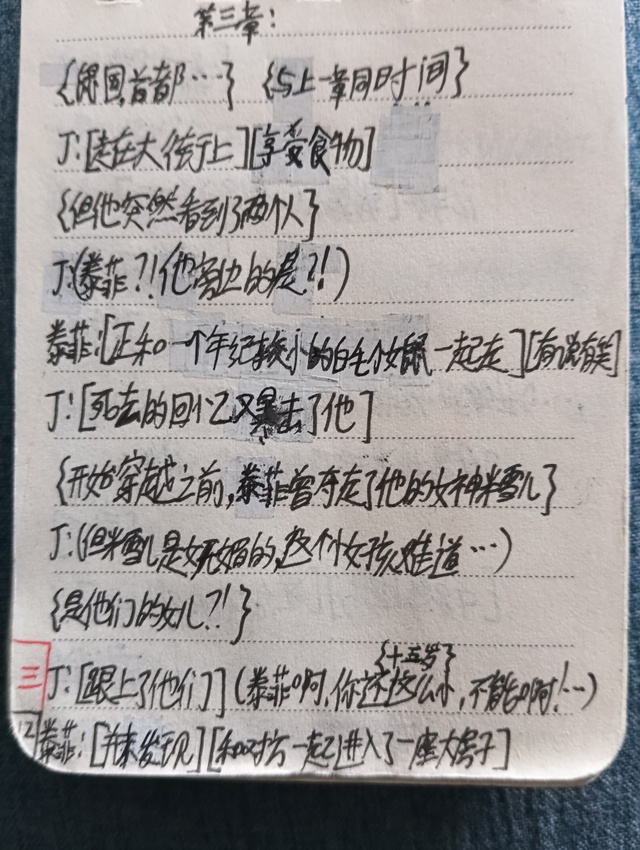 第三章：
{德国,首都…} {与上一章同时间}
J:[走在大街上][享受食物]
{但他突然看到了两个人}
J:(泰菲?!他旁边的是?!)
泰菲:[正和一个年纪较小的白毛女 一起走][有说有笑]
J:[死去的回忆又暴击了他]
{开始穿越之前,泰菲曾夺走了他的女神米雪儿}
J:(但米雪儿是妩媚的,这个女孩,难道…)
{是他们的女儿?!}
{十五岁}
J:[跟上了他们](泰菲啊,你还这么小,不能啊!…)
三
12
泰菲:[并未发现][和对方一起进入了一座大房子]